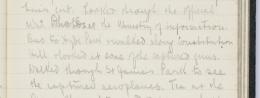 times cut. Looked through the official
War Photos at the Ministry of Information.
Bus to Hyde Park walked along Constitution
Hill looked at some of the captured guns.
Walked through St James's Park to see
the captured aeroplanes. Tea at the